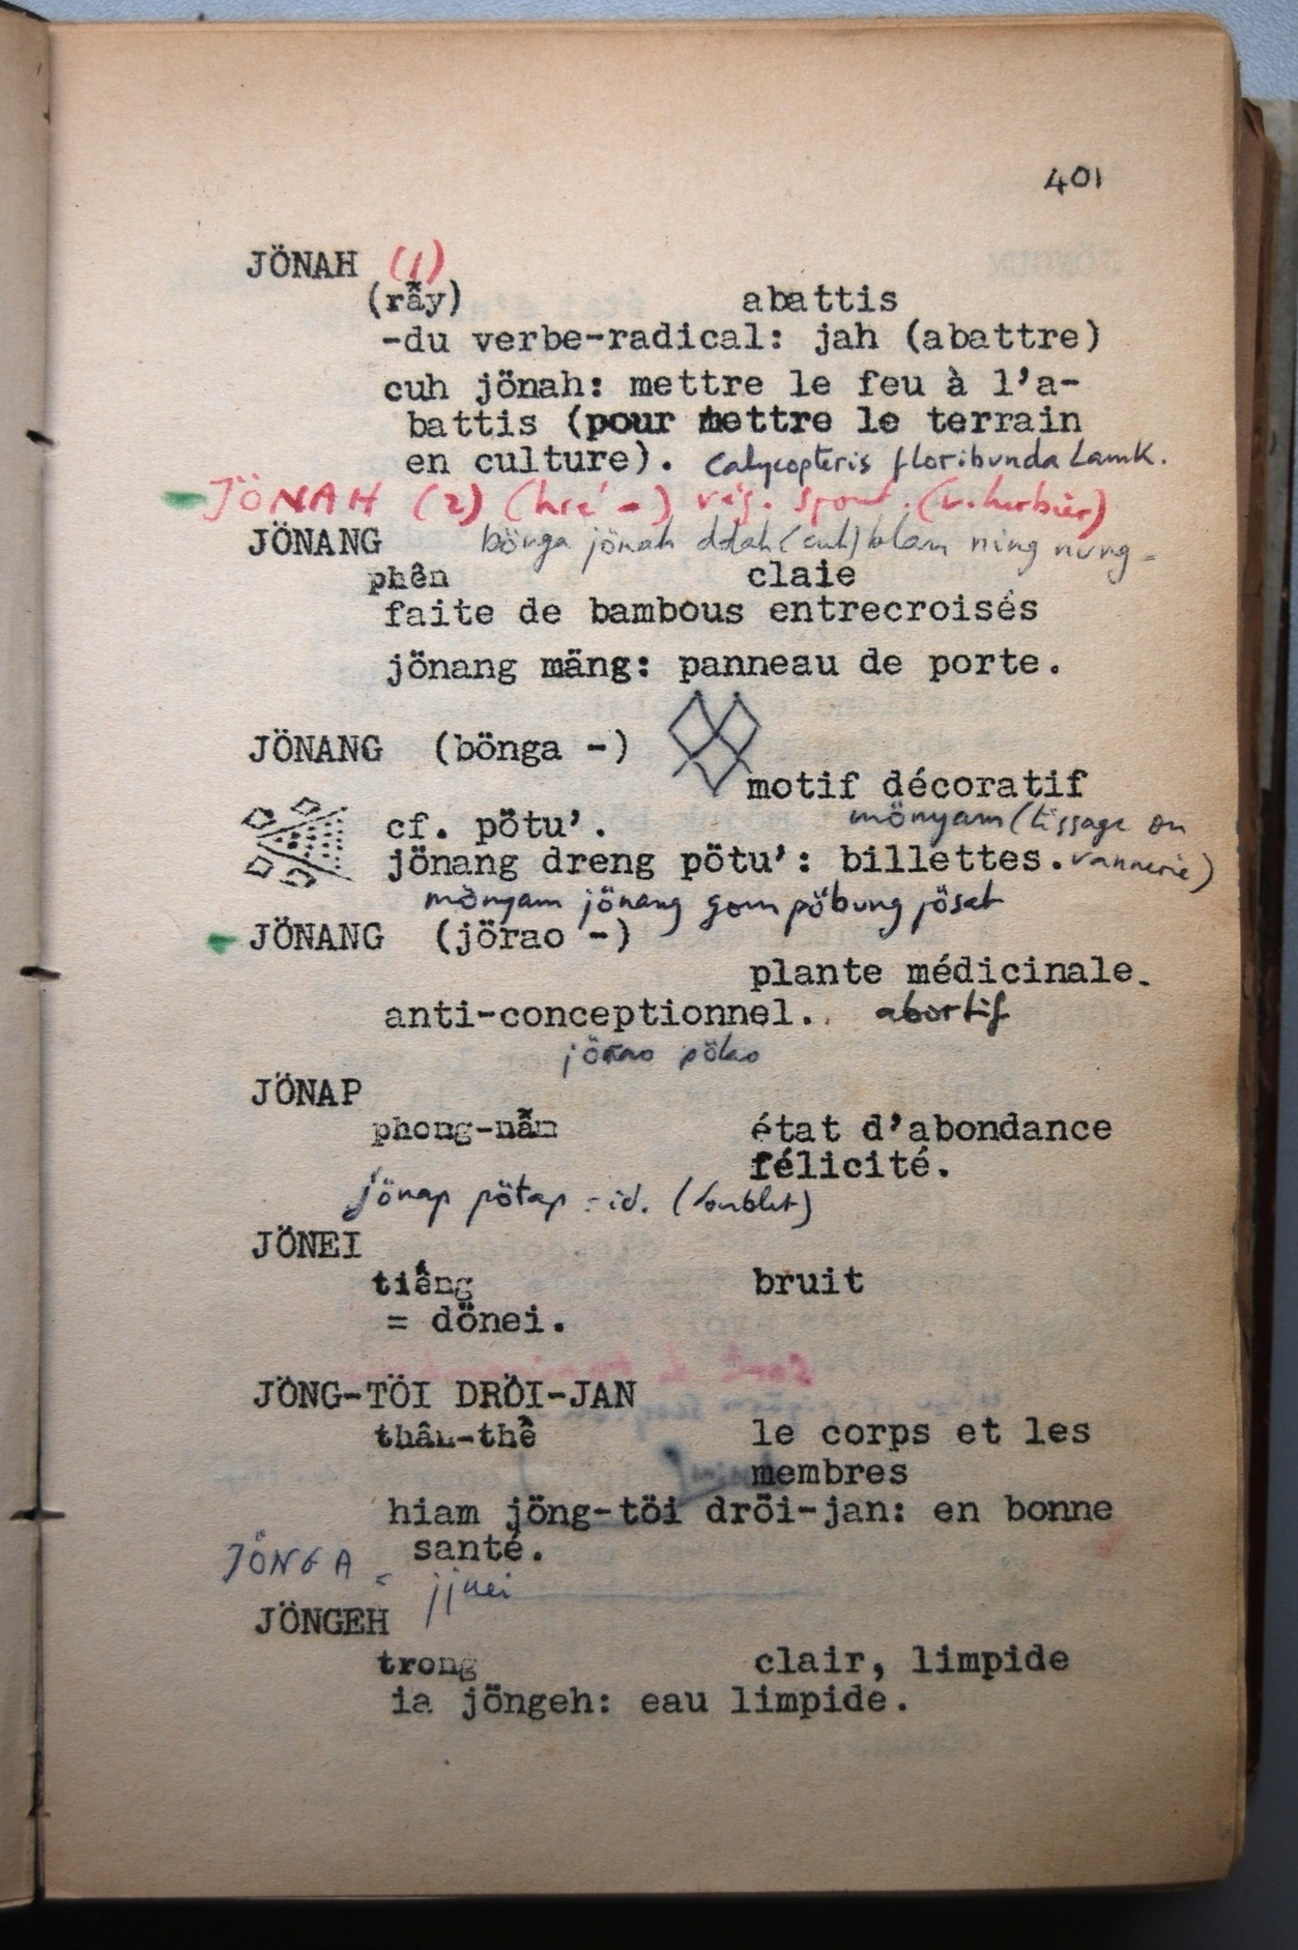 401
JÖNAH (1)
(rẫy) abattis
-du verbe-radical: jah (abattre)
cuh jönah: mettre le feu à l'a-
battis (pour mettre le terrain
en culture). Calycopteris floribunda Lamk.
JÖNAH (2) (hré -) vég. spont. (v. herbier)
JÖNANG bönga jönah ddah (cuh) blam ning nung -
phên claie
faite de bambous entrecroisés
jönang mäng: panneau de porte.
JÖNANG (bönga -)
motif décoratif
cf. pötu'. mönyam (tissage ou
jönang dreng pötu': billettes. vannerie)
mönyam jönang gom pöbung jösat
JÖNANG (jörao -)
plante médicinale.
anti-conceptionnel. abortif
jörao pölao
JÖNAP
phong-nẫm état d'abondance
félicité.
jönap pötap = id. (doublet)
JÖNEI
tiếng bruit
= dönei.
JÖNG-TÖI DRÖI-JAN
thân-thể le corps et les
membres
hiam jöng-töi dröi-jan: en bonne
santé.
JÖNGA =
JÖNGEH
trong clair, limpide
ia jöngeh: eau limpide.